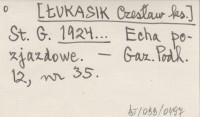 [ŁUKASIK Czesław ks.]
St. G. 1924... Echa po-
zjazdowe. — Gaz. Podh.
12, nr 35.